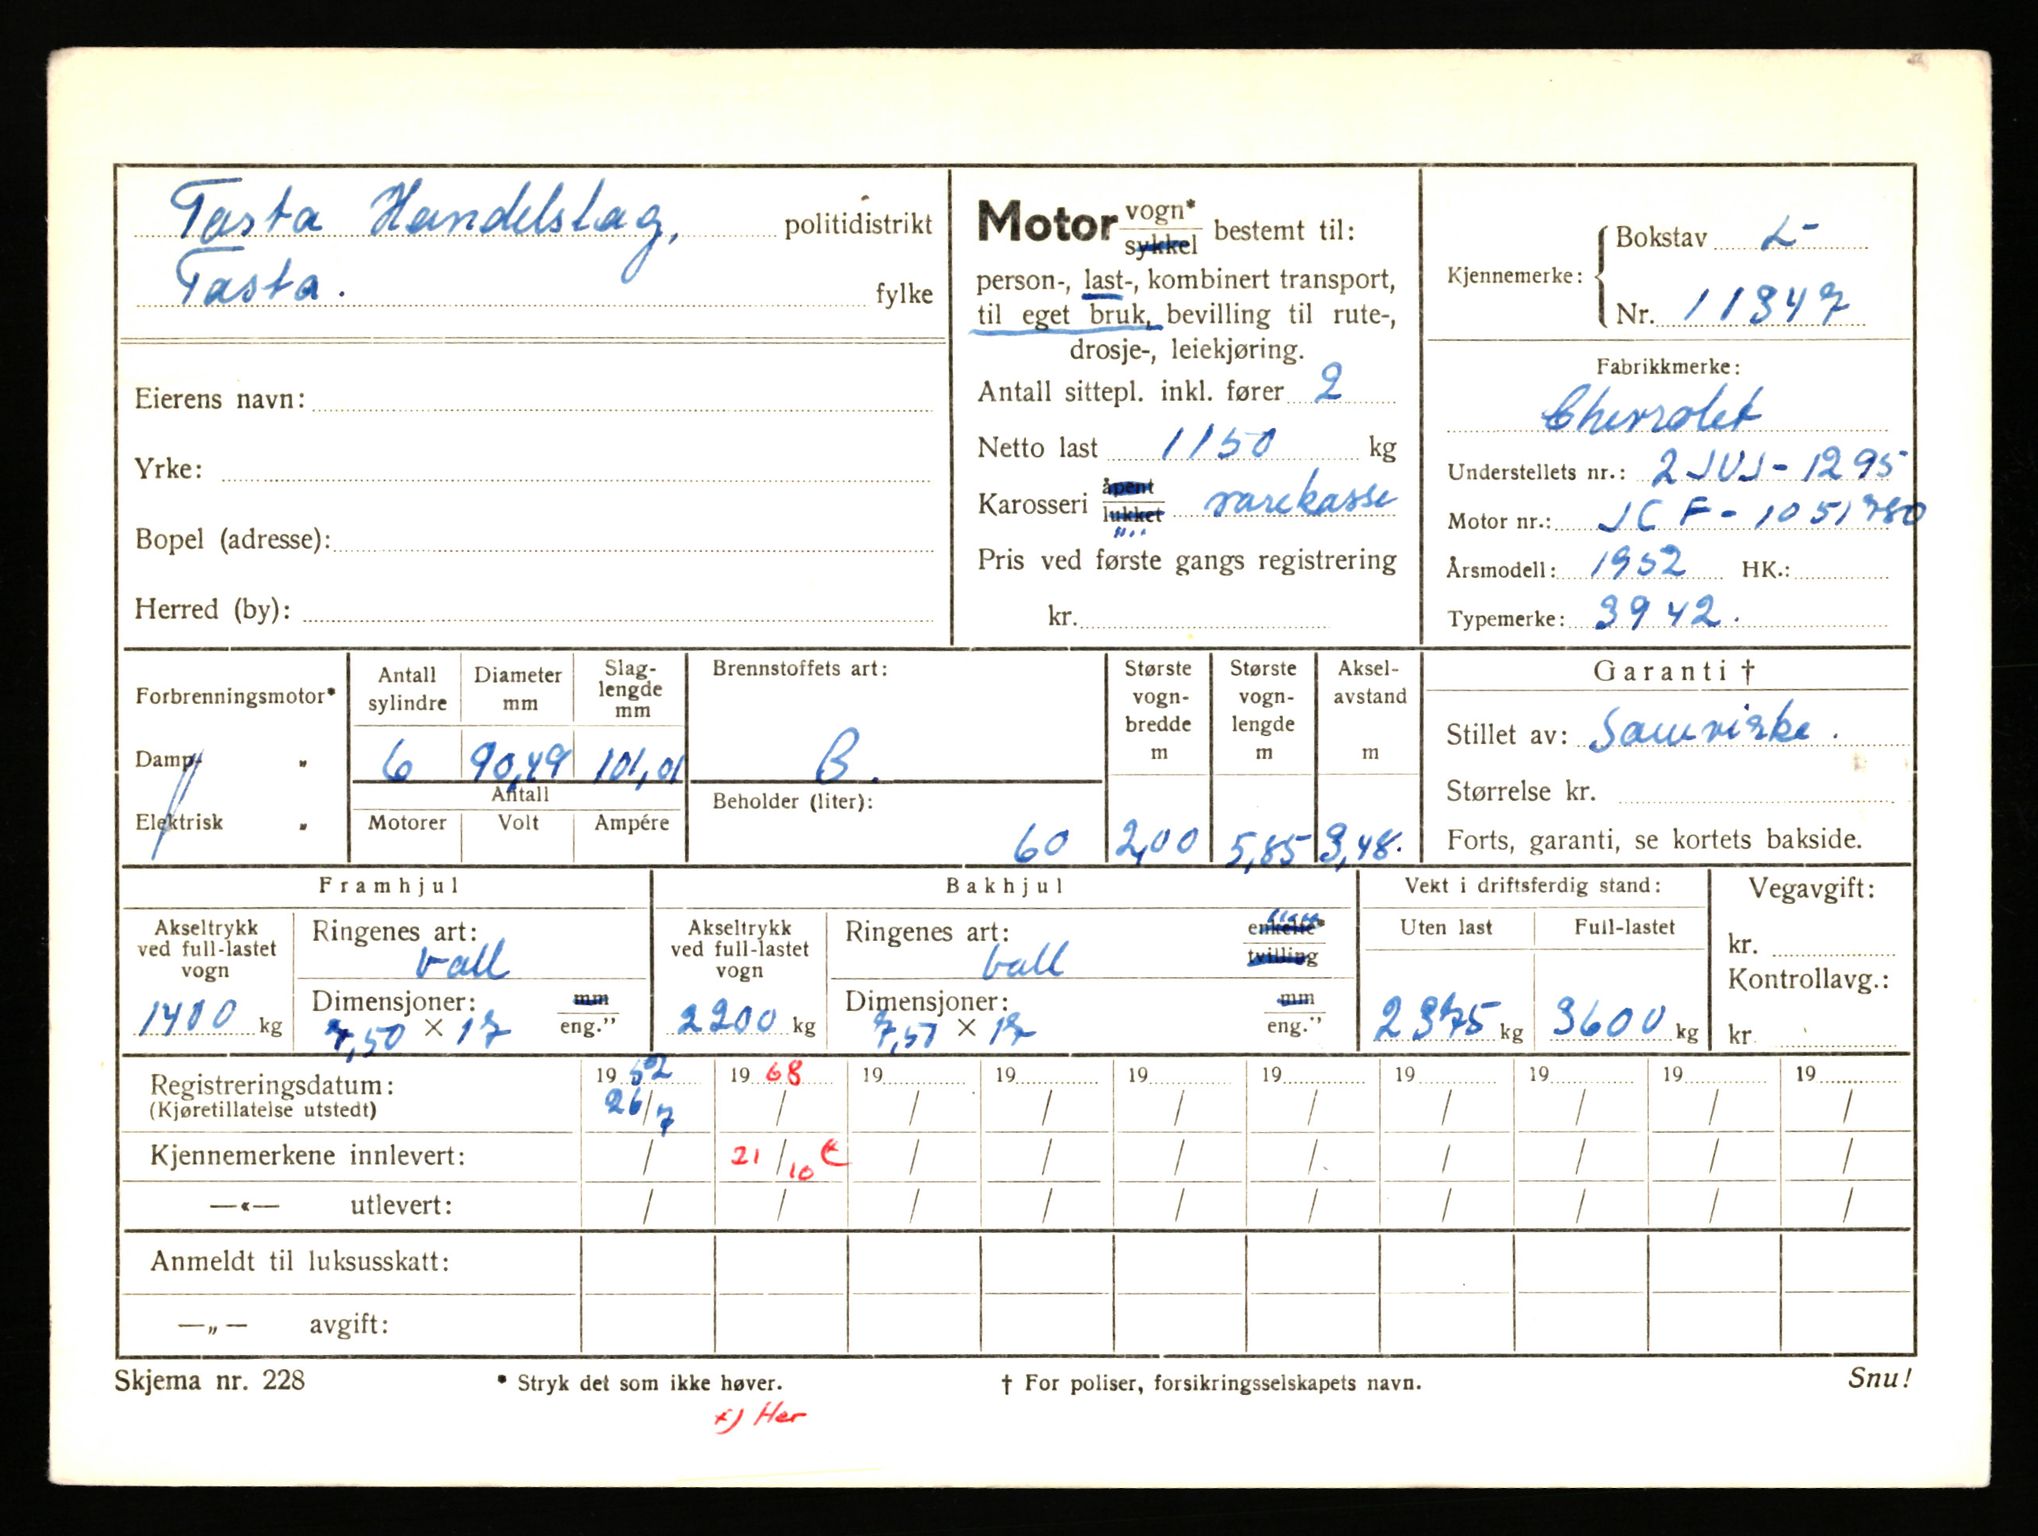 Tasta Handelslag, politidistrikt
Tasta. fylke
Eierens navn:
Yrke:
Bopel (adresse):
Herred (by):
Motor vogn* sykkel bestemt til:
person-, last-, kombinert transport,
til eget bruk, bevilling til rute-,
drosje-, leiekjøring.
Antall sittepl. inkl. fører 2
Netto last 1150 kg
Karosseri åpent lukket varekasse
Pris ved første gangs registrering
kr.
Kjennemerke: Bokstav L-
Nr. 11347
Fabrikkmerke:
Chevrolet
Understellets nr.: 2 JUJ - 1295
Motor nr.: JCF - 1051780
Årsmodell: 1952 HK.:
Typemerke: 3942.
Forbrenningsmotor*
Damp- „
Elektrisk „
Antall sylindre
Diameter mm
Slag- lengde mm
6 90,49 101,01
Antall
Motorer Volt Ampére
Brennstoffets art:
B.
Beholder (liter):
60
Største vogn- bredde m
2,00
Største vogn- lengde m
5,85
Aksel- avstand m
3,48.
Garanti †
Stillet av: Samvirke.
Størrelse kr.
Forts, garanti, se kortets bakside.
Framhjul
Akseltrykk ved full-lastet vogn
1400 kg
Ringenes art:
ball
Dimensjoner: mm
7,50 × 17 eng.”
Bakhjul
Akseltrykk ved full-lastet vogn
2200 kg
Ringenes art: enkelte* tvilling
ball
Dimensjoner: mm
7,50 × 17 eng.”
Vekt i driftsferdig stand:
Uten last Full-lastet
2375 kg 3600 kg
Vegavgift:
kr.
Kontrollavg.:
kr
Registreringsdatum: 19 52 19 68 19 19 19 19 19 19 19 19
(Kjøretillatelse utstedt) 26/7 / / / / / / / / /
Kjennemerkene innlevert: / 21/10 / / / / / / / /
—«— utlevert: / / / / / / / / / /
Anmeldt til luksusskatt:
—„— avgift:
Skjema nr. 228 * Stryk det som ikke høver. † For poliser, forsikringsselskapets navn. Snu!
x) Her